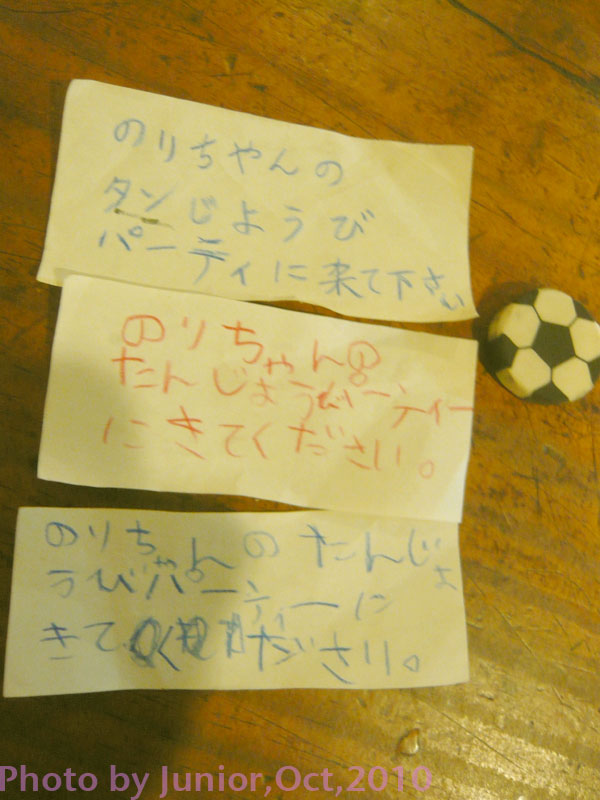 のりちゃんの
タンじょうび
パーティに来て下さい
のりちゃんの
たんじょうびパーティー
にきてください。
のりちゃんのたんじょ
うびパーティーに
きてください。
Photo by Junior,Oct,2010